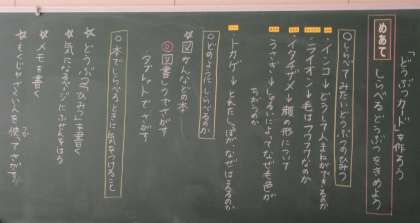 どうぶつカードを作ろう
めあて しらべるどうぶつをきめよう
○しらべてみたいどうぶつのひみつ
・インコ→どうして人まねができるのか
・ライオン→毛はフワフワなのか
・イタチザメ→顔の形について
・うさぎ→しゅるいによってなぜ毛色が
ちがうのか
・トカゲ→とれたしっぽがなぜはえるのか
○どのようにしらべるか
☆図かんなどの本
図書しつでさがす
タブレットでさがす
○本でしらべるときに気をつけること
☆どうぶつの「ひみつ」を書く
☆気になるページにふせんをはる
☆メモを書く
☆もくじやさくいんを使ってさがす